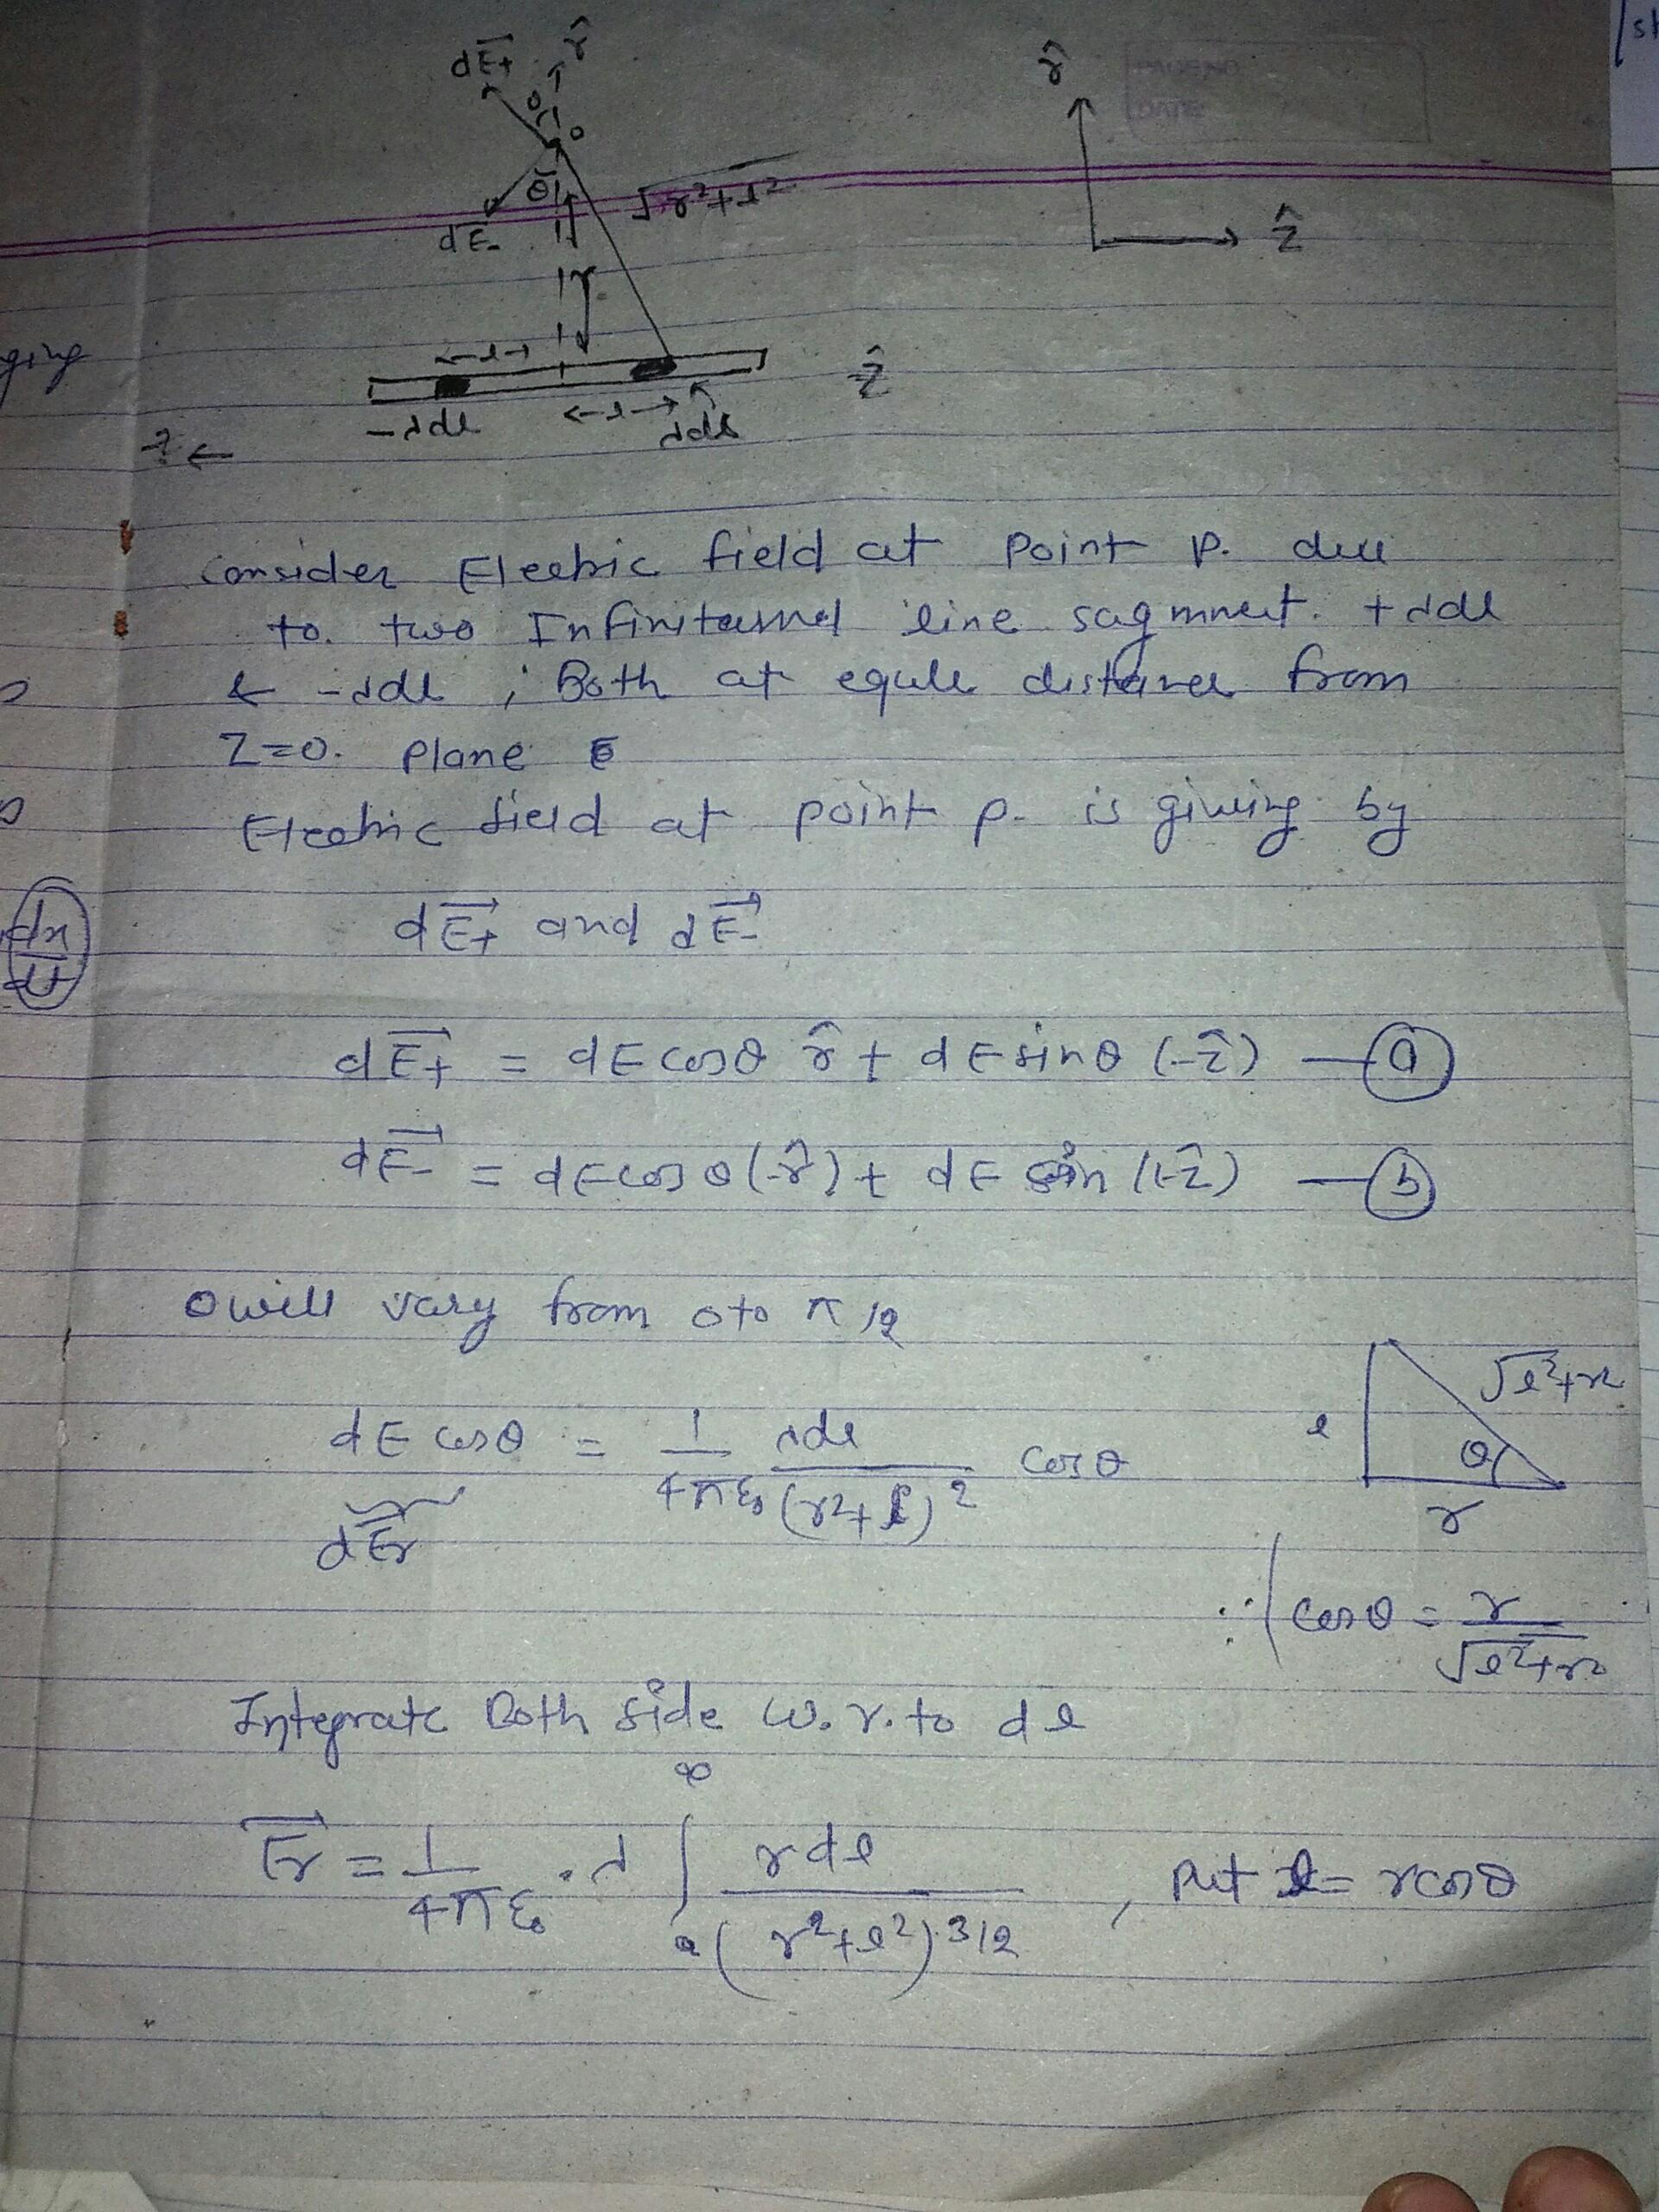 dE+ r̂
θ
r̂
θ √r²+l²
dE- ẑ
r
←l→ ẑ
ging
-λdl ←l→ λdl
consider Electric field at point p. due
to. two Infinitesmel line sagmnent. +λdl
& -λdl ; Both at equle distance from
Z=0. plane
Electric field at point p. is giving by
dE⃗+ and dE⃗-
dx
dt
dE⃗+ = dE cosθ r̂ + dE sinθ (-ẑ) — (a)
dE⃗- = dE cosθ (-r̂) + dE sin (-ẑ) — (b)
θ will vary from 0 to π/2
√l²+r²
dE cosθ = 1/4πε₀ λdl/(r²+l)² cosθ
l θ
r
dE⃗r
∴ cosθ = r/√l²+r²
Integrate Both side w.r.to dl
∞
E⃗r = 1/4πε₀ . λ ∫ rdl/(r²+l²)^3/2 , Put l = r cosθ